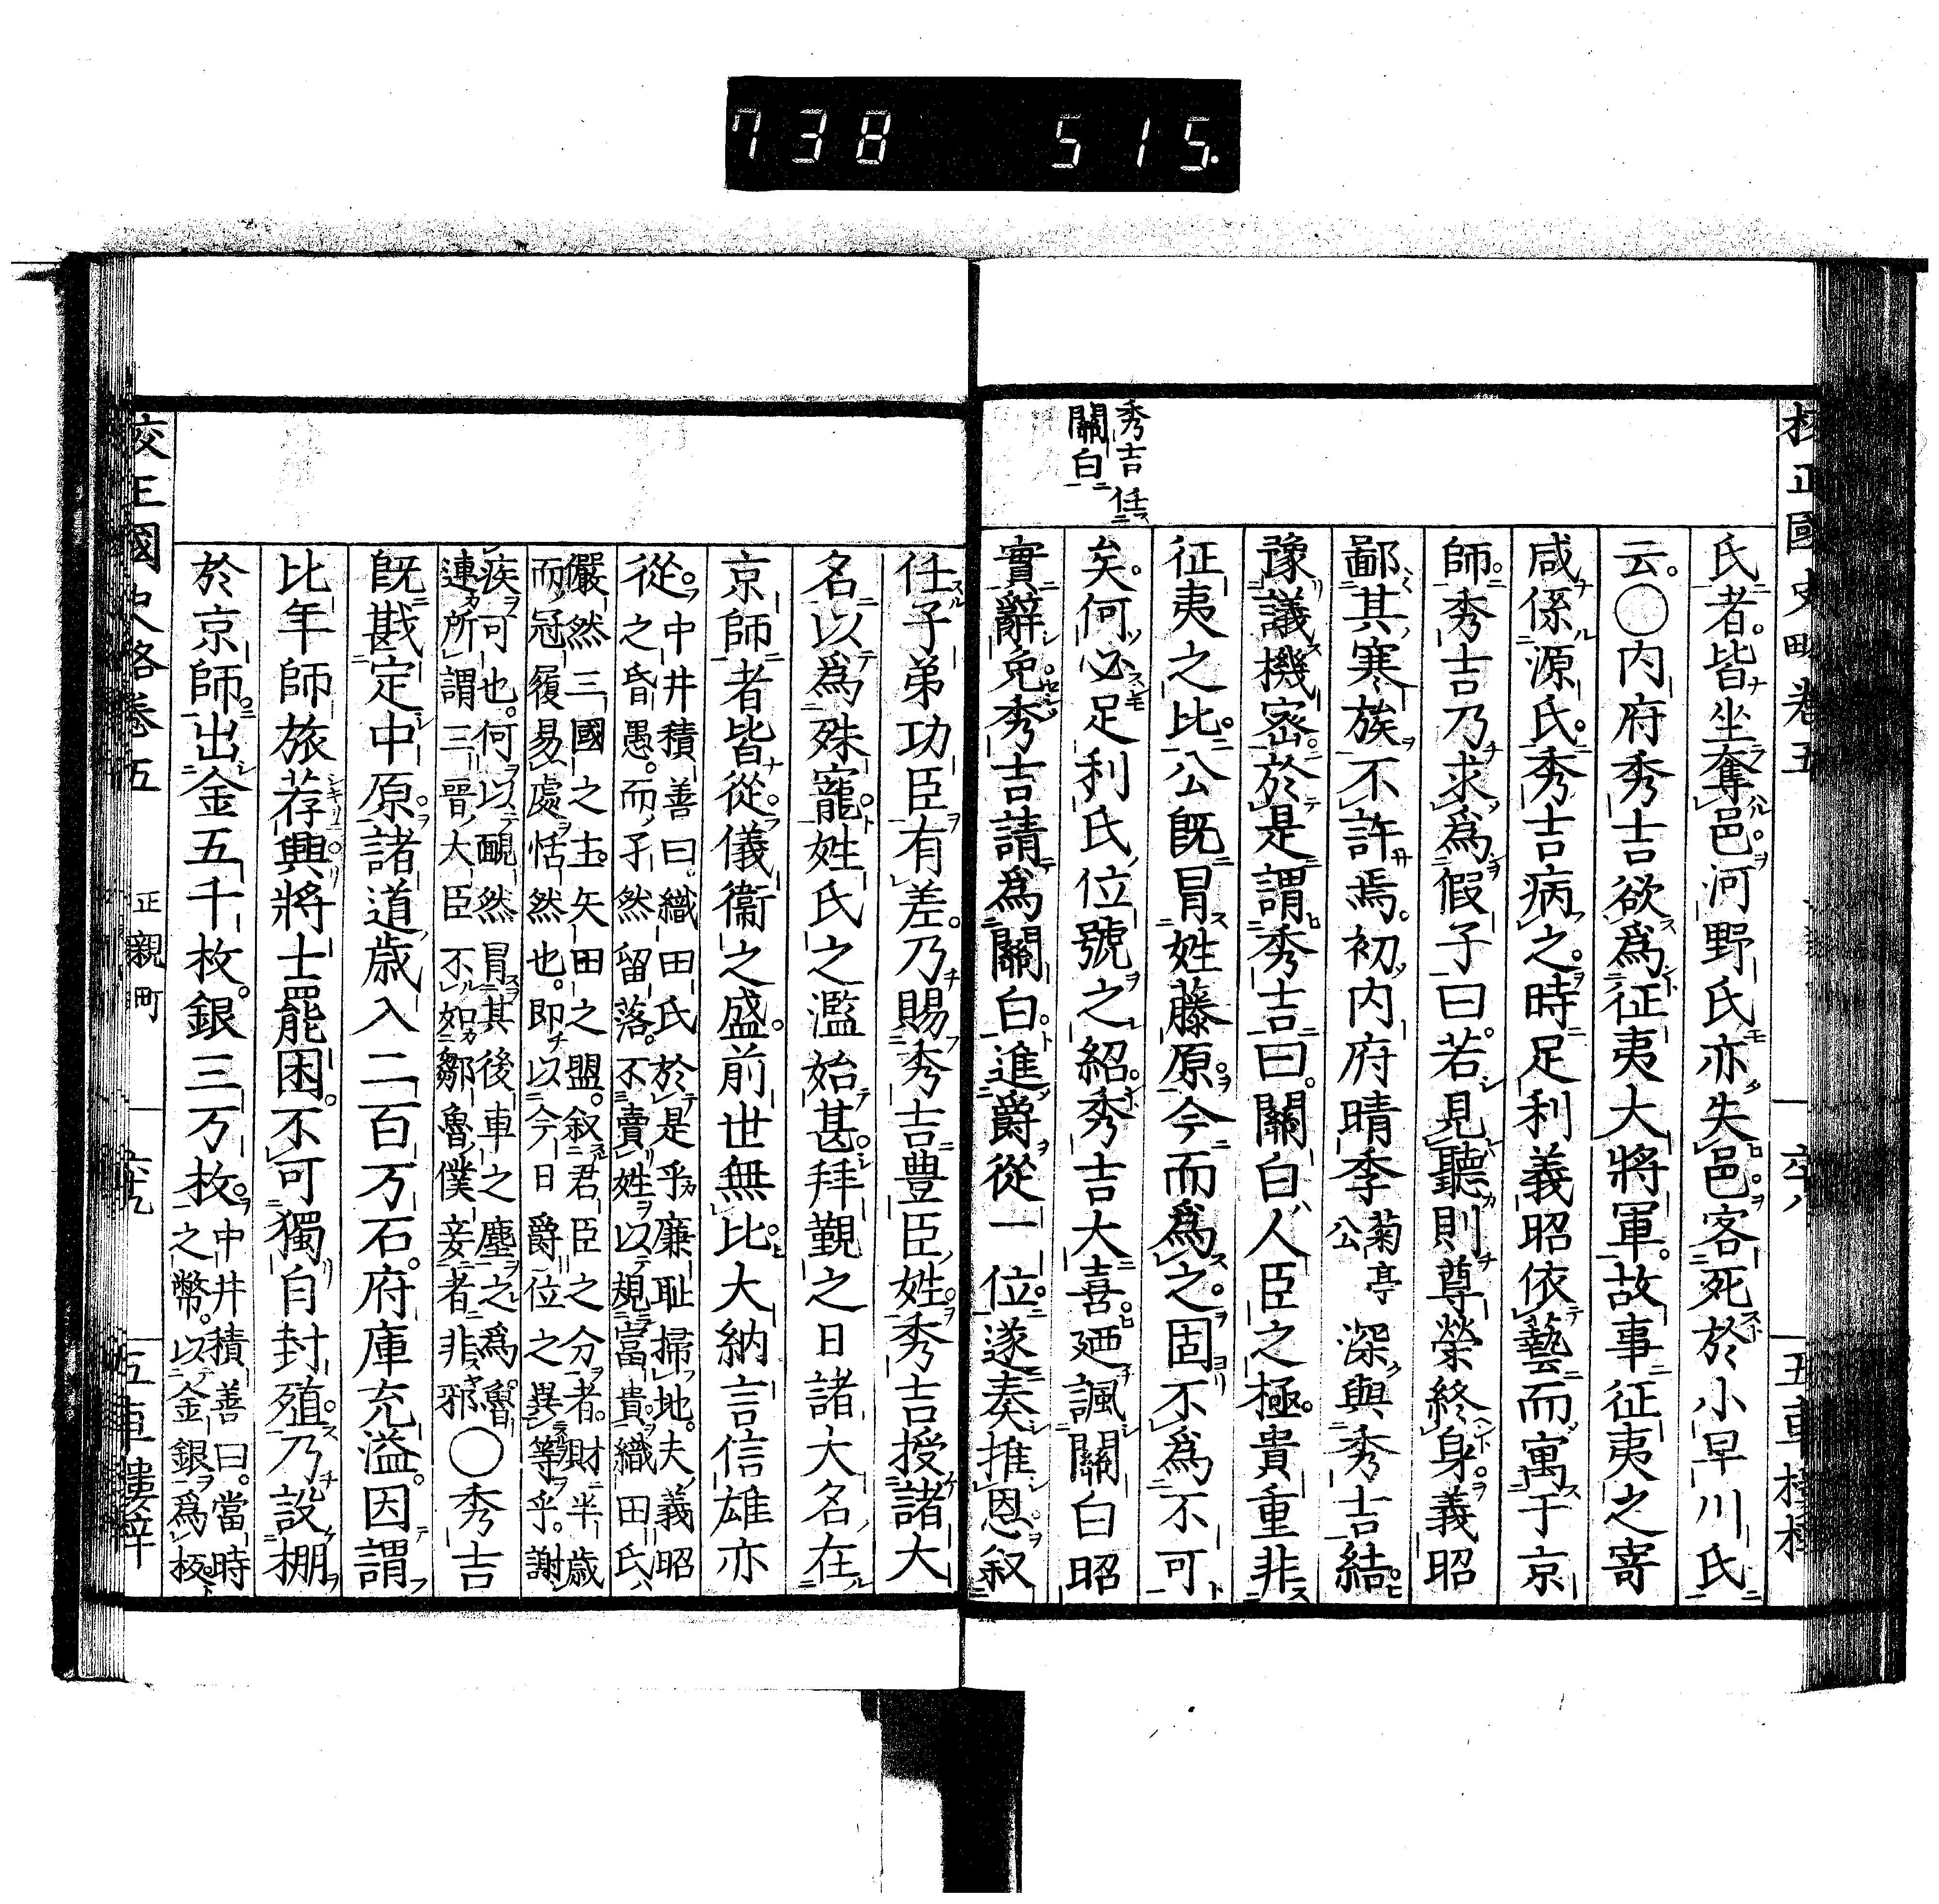 738 515.
校正國史略卷五
六十八
五車樓梓
秀吉任
關白
氏者。皆坐奪邑。河野氏亦失邑。客死於小早川氏
云。○內府秀吉欲爲征夷大將軍。故事征夷之寄
咸係源氏。秀吉病之。時足利義昭依藝而寓于京
師。秀吉乃求爲假子曰。若見聽則尊榮終身。義昭
鄙其寒族不許焉。初內府晴季菊亭公深與秀吉結。
豫議機密。於是謂秀吉曰。關白人臣之極。貴重非
征夷之比。公既冒姓藤原。今而爲之。固不爲不可
矣。何必足利氏位號之紹。秀吉大喜。廼諷關白昭
實辭免。秀吉請爲關白。進爵從一位。遂奏推恩叙
任子弟功臣有差。乃賜秀吉豐臣姓。秀吉授諸大
名以爲殊寵。姓氏之濫始甚。拜覲之日諸大名在
京師者皆從。儀衞之盛。前世無比。大納言信雄亦
從。中井積善曰。織田氏於是乎廉耻掃地。夫義昭
之昏愚。而孑然留落。不賣姓以規富貴。織田氏
儼然三國之主。矢田之盟。叙君臣之分者。財半歲
而冠履易處。恬然也。即以今日爵位之異等乎。謝
疾可也。何以靦然冒其後車之塵之爲。魯
連所謂三晉大臣不如鄒魯僕妾者非邪○秀吉
既戡定中原。諸道歲入二百万石。府庫充溢。因謂
比年師旅荐興。將士罷困。不可獨自封殖。乃設棚
於京師。出金五千枚。銀三万枚。中井積善曰。當時
之幣。以金銀爲板
校正國史略卷五
正親町
六十九
五車樓梓